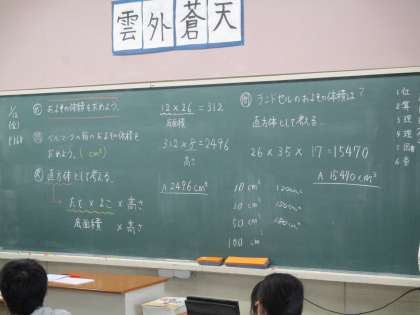 雲外蒼天
1/12
(金)
P168
め およその体積を求めよう。
問 の箱のおよその体積を
求めよう。( cm³)
考 直方体として考える。
たて × よこ × 高さ
底面積 × 高さ
12 × 26 = 312
底面積
312 × 8 = 2496
高さ
A 2496 cm³
問 ランドセルのおよその体積は?
直方体として考える
26 × 35 × 17 = 15470
A 15470 cm³
10 cm³
10 cm³
50 cm³
100 cm
1 位
2 算
3 理
4 理
5
6